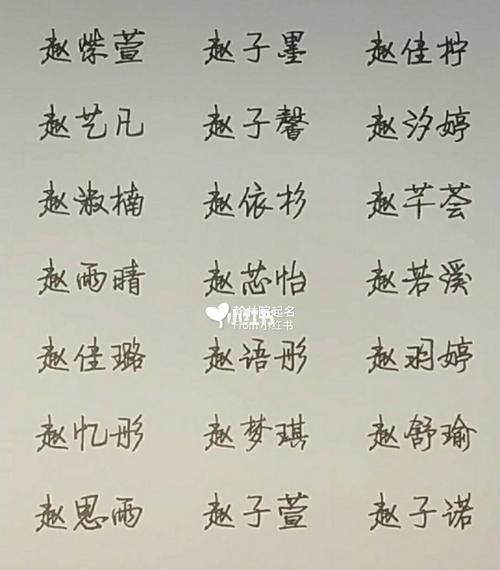 赵紫萱 赵子墨 赵佳柠
赵艺凡 赵子馨 赵汐婷
赵淑楠 赵依杉 赵芊荟
赵雨晴 赵芯怡 赵若溪
翰林院起名
小红书
From小红书
赵佳璐 赵语彤 赵羽婷
赵忆彤 赵梦琪 赵舒瑜
赵思雨 赵子萱 赵子诺